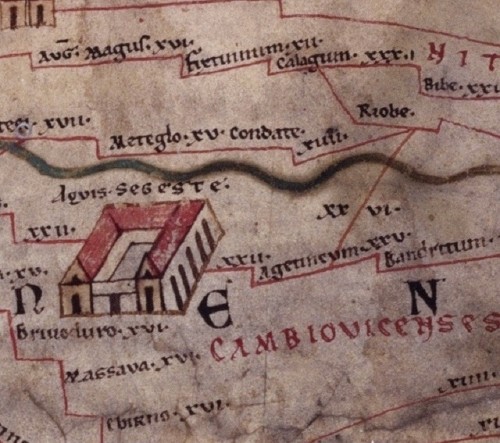 AVG. MAGVS. XVI.
Fixtuinum. XII.
Calagum. XXX.
NIT
Bibe. XXI
Riobe.
XVII.
Meteglo. XV.
Condate.
XIIII.
Aquis. Segeste.
XX VI.
XXII.
XXII.
Agetincum. XXV.
Bandritum.
XV.
N E N
Brivoduro. XVI.
CAMBIOVICENSES
Massava. XVI.
Ebirno. XVI.
XIIII.